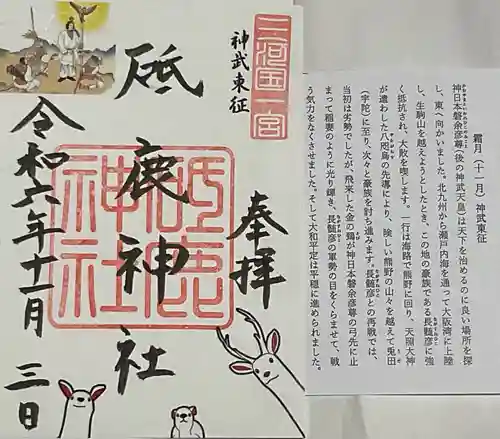 三河国一宮
神武東征
奉拝
砥鹿神社
砥鹿神社
令和六年十一月三日
霜月(十一月) 神武東征
神日本磐余彦尊(後の神武天皇)は天下を治めるのに良い場所を探
し、東へ向かいました。北九州から瀬戸内海を通って大阪湾に上陸
し、生駒山を越えようとしたとき、この地の豪族である長髄彦に強
く抵抗され、大敗を喫します。一行は海路で熊野に回り、天照大神
が遣わした八咫烏の先導により、険しい熊野の山々を越えて兎田
(宇陀)に至り、次々と豪族を討ち進みます。長髄彦との再戦では、
当初は劣勢でしたが、飛来した金の鵄が神日本磐余彦尊の弓先に止
まって稲妻のように光り輝き、長髄彦の軍勢の目をくらませて、戦
う気力をなくさせました。そして大和平定は平穏に進められました。